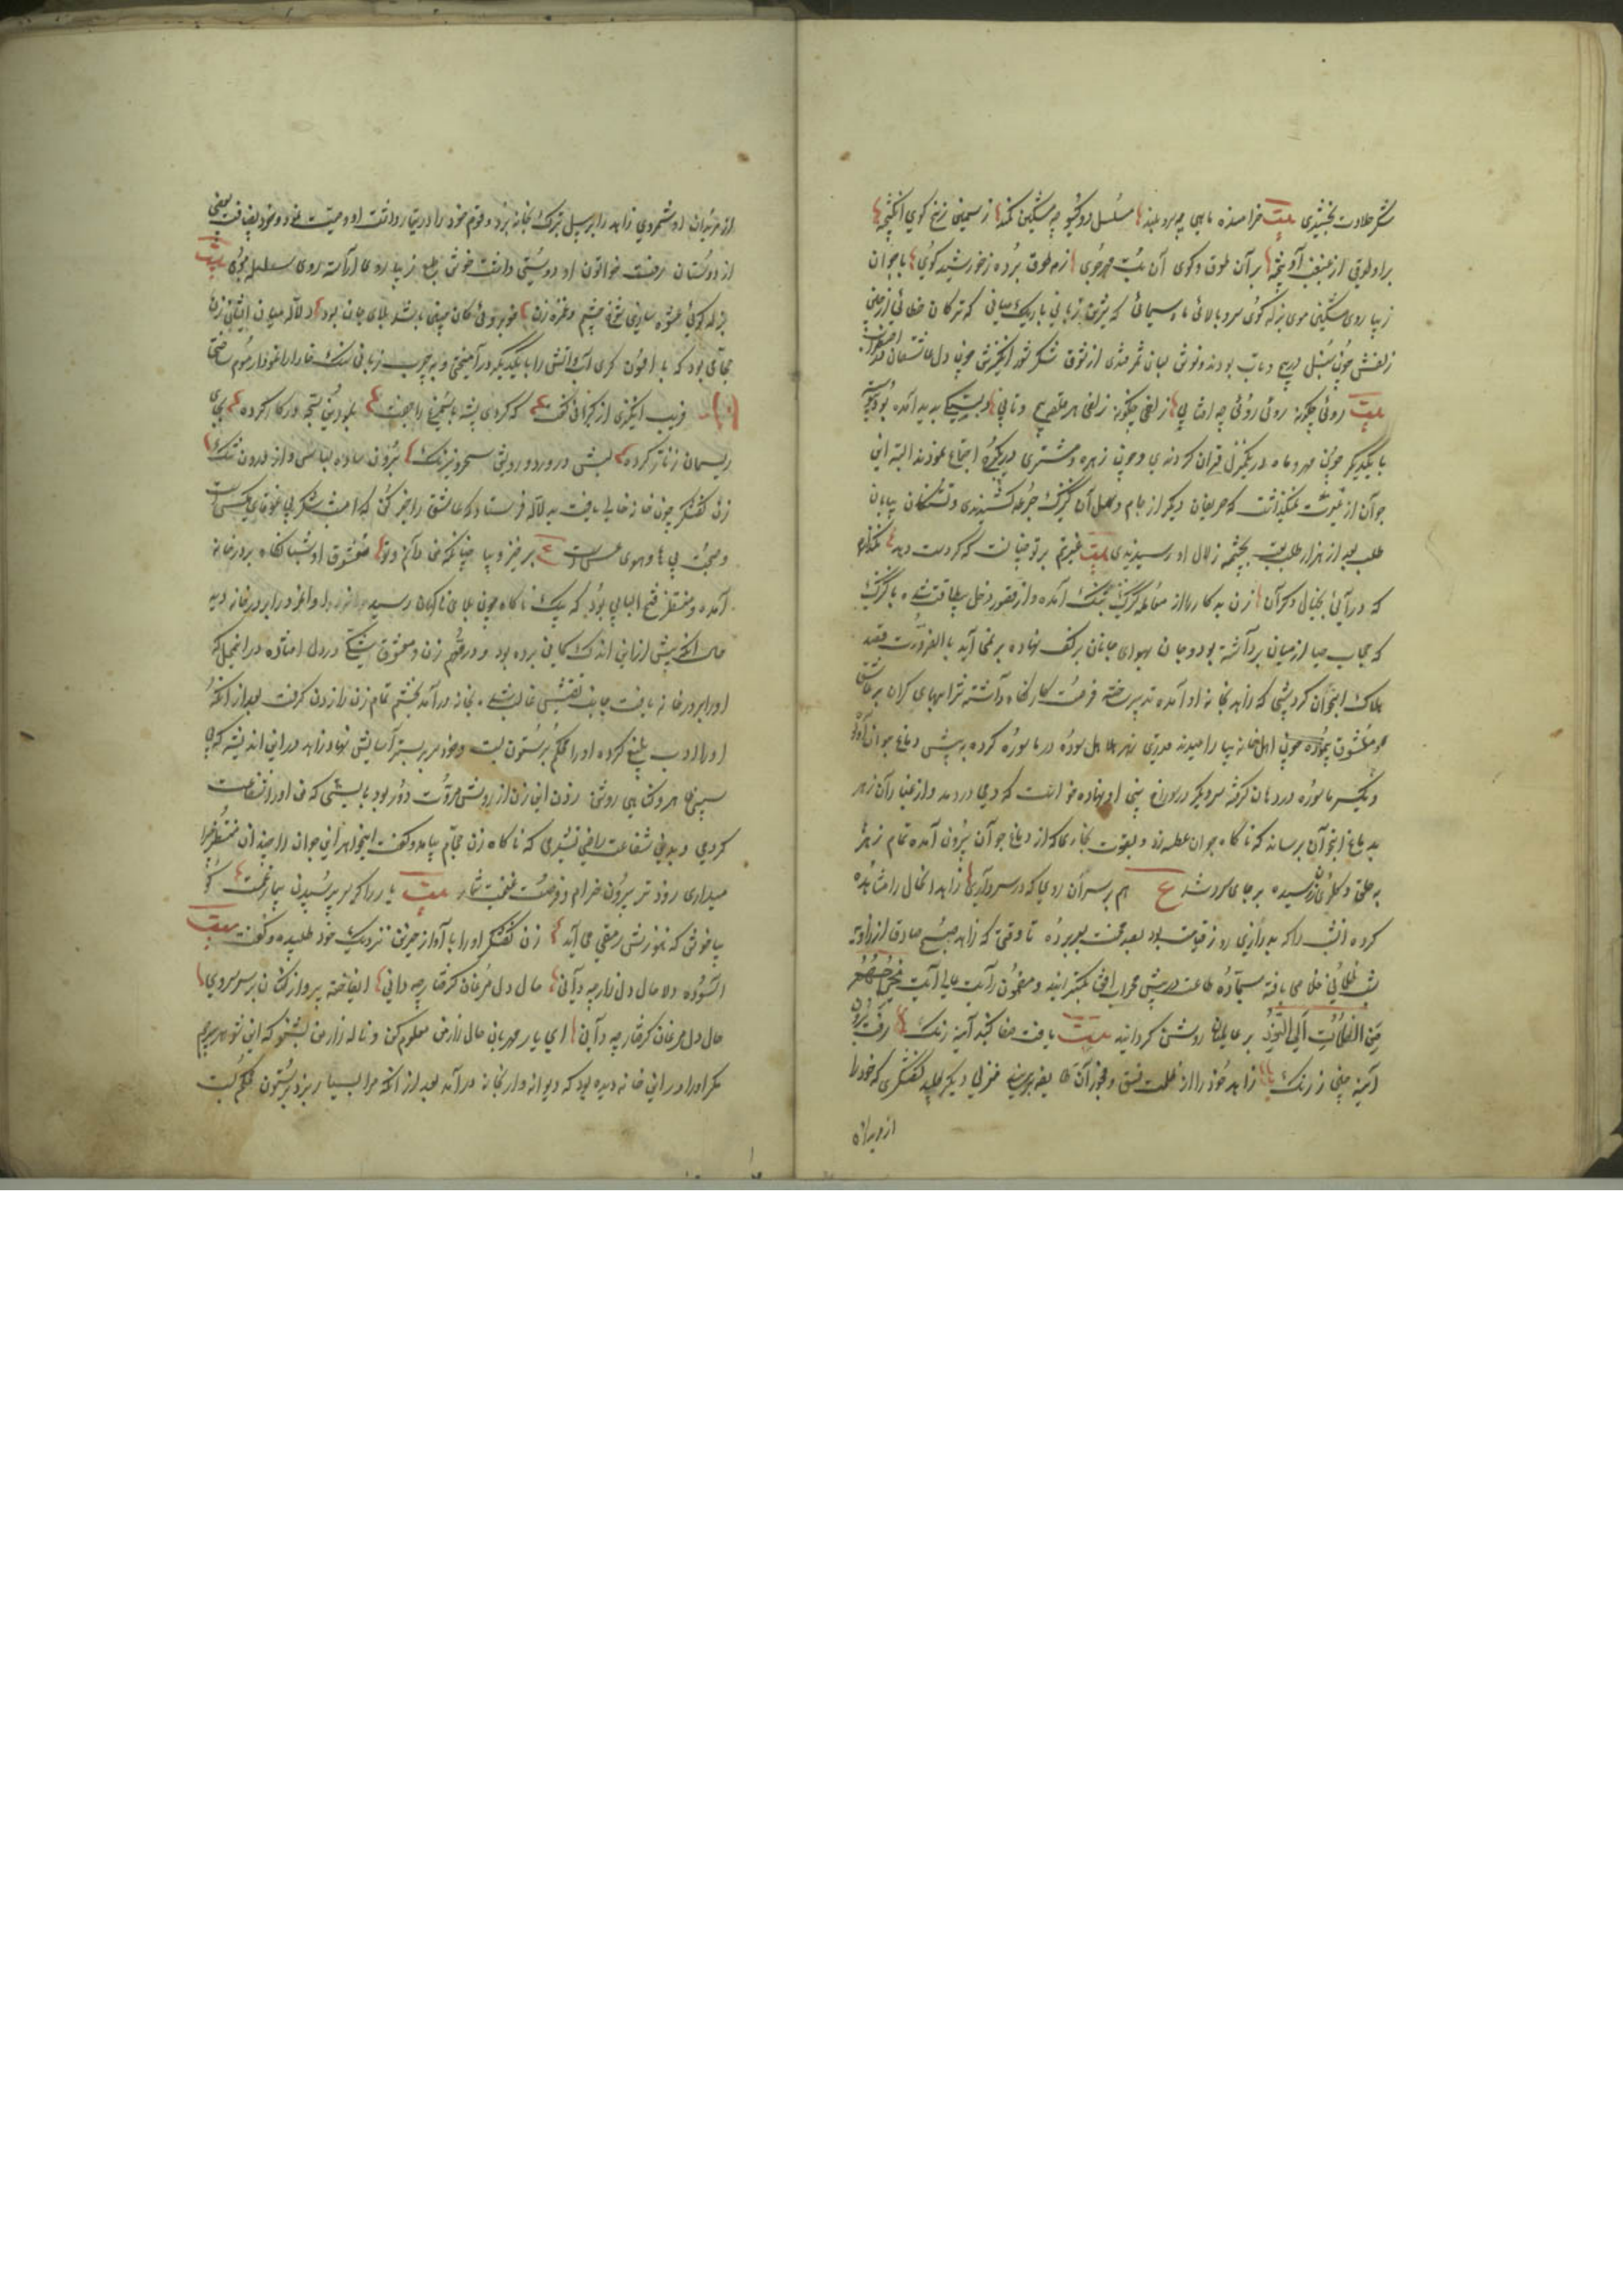 شکر حلاوت بخشیدی بیت خرامنده ماهی چو سرو بلند مسلسل دو گیسو چو مشکین کمند ز سیمین زنخ گوی انگیخته
برو طوقی از غبغب آویخته بر آن طوق و گوی آن بت مهرجوی ز مه طوق برده ز خورشید گوی با جوان
زیبا روی مشکین موی بذله گوی سرو بالائی ماه سیمائی شیرین زبانی باریک میانی که ترکان خطائی از چین
زلفش چون سنبل در پیچ و تاب بودند و نوش لبان سمرقندی از شوق شکر شور انگیزش چون دل عاشقان در اضطراب
بیت روئی چگونه روئی روئی چو آفتابی زلفی چگونه زلفی هر حلقه پیچ و تابی دلبستگی پدید آمده بود و پیوسته
با یکدیگر چون مهر و ماه در یک منزل قران کردندی و چون زهره و مشتری در یک برج اجتماع نمودند البته این
جوان از غیرت نمیگذاشت که حریفان دیگر از جام وصل آن کنیزک جرعه کشیدندی و تشنگان بیابان
طلب بعد از هزار تعب بچشمه زلال او رسیدندی بیت غیرتم بر تو چنانست که گر دست دهد نگذارم
که درآئی بخیال دگران زن بدکاره از معامله کنیزک بتنگ آمده و از قصور دخل بیطاقت شده با کنیزک
که حجاب حیا از میان برداشته بود و جان بهوای جانان بر کف نهاده بر نمی آید بالضرورت قصد
هلاک آن جوان کرد و شبی که زاهد بخانه او آمده تدبیر ساخته فرصت کار نگاه داشته شرابهای گران بر عاشق
و معشوق پیموده چون اهل خانه بیارامیدند قدری زهر هلاهل سوده در ماسوره کرده به پیش دماغ جوان آورد
و یک سر ماسوره در دهان گرفته سر دیگر در سوراخ بینی او نهاده خواست که دمی در دمد و از غبار آن زهر
بدماغ آن جوان رساند که ناگاه جوان عطسه زد و بقوت بخاری که از دماغ جوان بیرون آمده تمام زهر
به حلق و گلوی زن رسیده بر جای سرد شد ع هم بر سر آن روی که در سر داری زاهد آن حال را مشاهده
کرده آن شب را که به درازی روز قیامت بود بصد محنت بسر برده تا وقتی که زاهد صبح صادق از زاویه
شب ظلمانی خلاصی یافته سجاده طاعت در پیش محراب افق بگسترانید و مضمون آیت عالی آیت یخرجهم
من الظلمات الی النور بر عالمیان روشن گردانید بیت یافت صفا گنبد آئینه رنگ رفت برون
آئینه چین ز زنگ زاهد خود را از ظلمت فسق و فجور آن طایفه برهانید منزلی دیگر طلبید کفشگری که خود را
از مریدان
از مریدان او شمردی زاهد را بر سبیل تبرک بخانه برد و قوم خود را در تیمار داشت او وصیت نمود و خود بضیافت بعضی
از دوستان رفت خاتون او دوستی داشت خوش طبع زیبا روی آراسته روی سلسله موی بیت
بذله گوئی عشوه سازی شوخ چشم و غمزه زن خوبروئی کان چنین باشد بلای جان بود دلاله میان ایشان زن
حجامی بود که بافسون گری آب و آتش را با یکدیگر در آمیختی و به چرب زبانی سنگ خارا را نمودار موم ساختی
فریب انگیزی از گرانی کفت که کردی پشه با سیمرغ را جفت بلورین سبحه در کار کرده بجای
ریسمان زنار کرده لبش در ورد و رویش سحر و نیرنگ برون ساده لباسی و از درون تنگ
زن کفشگر چون خانه خالی یافت به دلاله فرستاد که عاشق را خبر کن که امشب شکر بی غوغای مگس است
و صحبت بی های و هوی عسس است ع برخیز و بیا چنانکه من دانم و تو معشوق او شبانگاه بر در خانه
آمده و منتظر فتح الباب بود که یک ناگاه چون بلای ناگهان رسید و آن مرد را بر در خانه دید
حال آنکه پیش از این اندک گمانی برده بود و در قوم زن و معشوق شکی در دل افتاده در آن محل که
او را بر در خانه یافت جانب نقیض غالب شده بخانه درآمد بخشم تمام زن را زدن گرفت بعد از آنکه
او را ادب بلیغ کرده او را محکم بر ستون بست و خود سر بر بستر آسایش نهاد زاهد در این اندیشه که بی
سببی ظاهر و گناهی روشن زدن این زن از روش مروت دور بود بایستی که من او را شفاعت
کردمی و بدین شفاعت راضی نشدی که ناگاه زن حجام بیامد و گفت ای خواهر این جوان را چندین منتظر چرا
میداری زودتر بیرون خرام و فرصت غنیمت شمار بیت یار را گر سر پرسیدن بیمار غمست گو
بیا خوش که هنوزش رمقی می آید زن کفشگر او را بآواز حزین نزدیک خود طلبیده و گفت بیت
آسوده دلا حال دل زار چه دانی حال دل مرغان گرفتار چه دانی ای فاخته پرواز کنان بر سر سروی
حال دل مرغان گرفتار چه دانی ای یار مهربان حال زار من معلوم کن و ناله زار من بشنو که این شوهر بیرحم
مگر او را در این خانه دیده بود که دیوانه وار بخانه درآمد بعد از آنکه مرا بسیار بزد بر ستون محکم بست